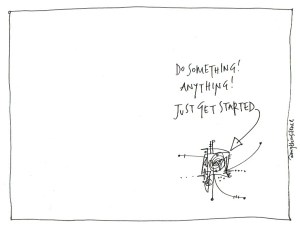 DO SOMETHING!
ANYTHING!
JUST GET STARTED